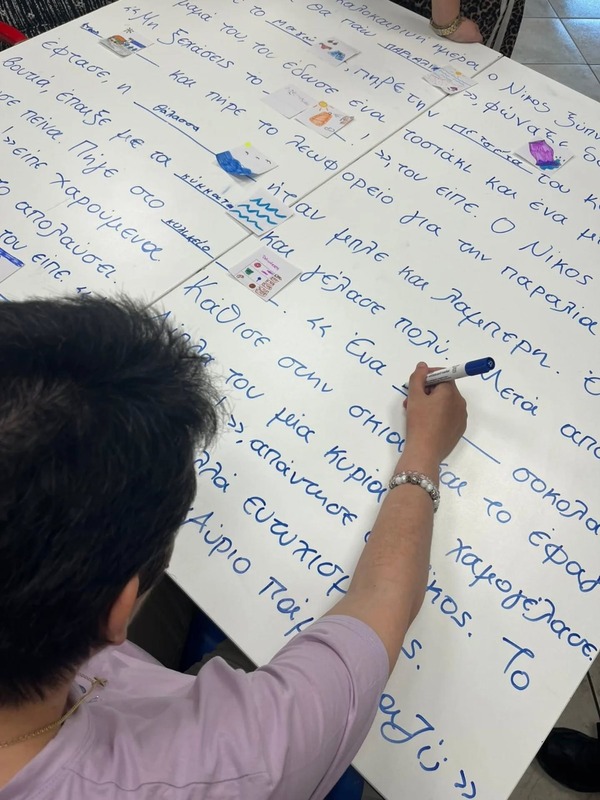 καλοκαιρινή ημέρα ο Νίκος ξυπν
θα πάω παραλία», φώναξε
το μαγιό, πήρε την πετσέτα του κ
μαμά του, του έδωσε ένα τοστάκι και ένα
«Μη ξεχάσεις το !», του είπε. Ο Νίκος
και πήρε το λεωφορείο για την παραλία
έφτασε, η θάλασσα ήταν μπλε και λαμπερή.
βουτιά, έπαιξε με τα κύματα και γέλασε πολύ. Μετά από
σε πείνα. Πήγε στο κυλικείο. «Ένα σοκολα
», είπε χαρούμενα Κάθισε στην σκιά και το έφαγ
το απολαύσει του μία κυρία χαμογέλασε.
του είπε. «», απάντησε Νίκος. Το
λλά ευτυχισμ ς.
Αύριο πάμ αζί»